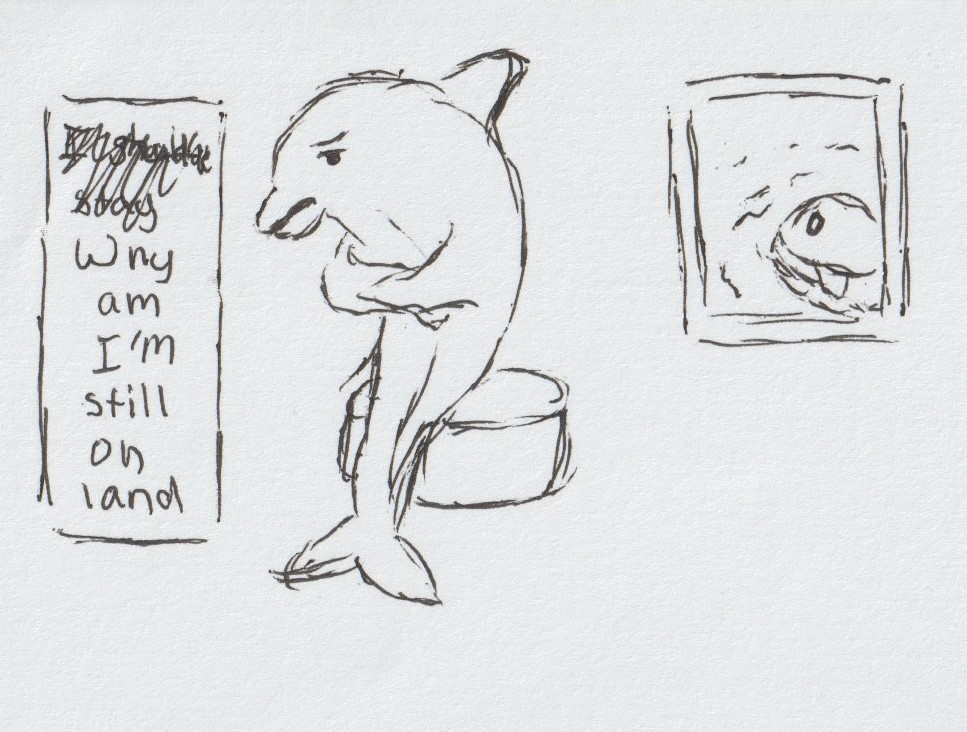 Why
am
I'm
still
on
land